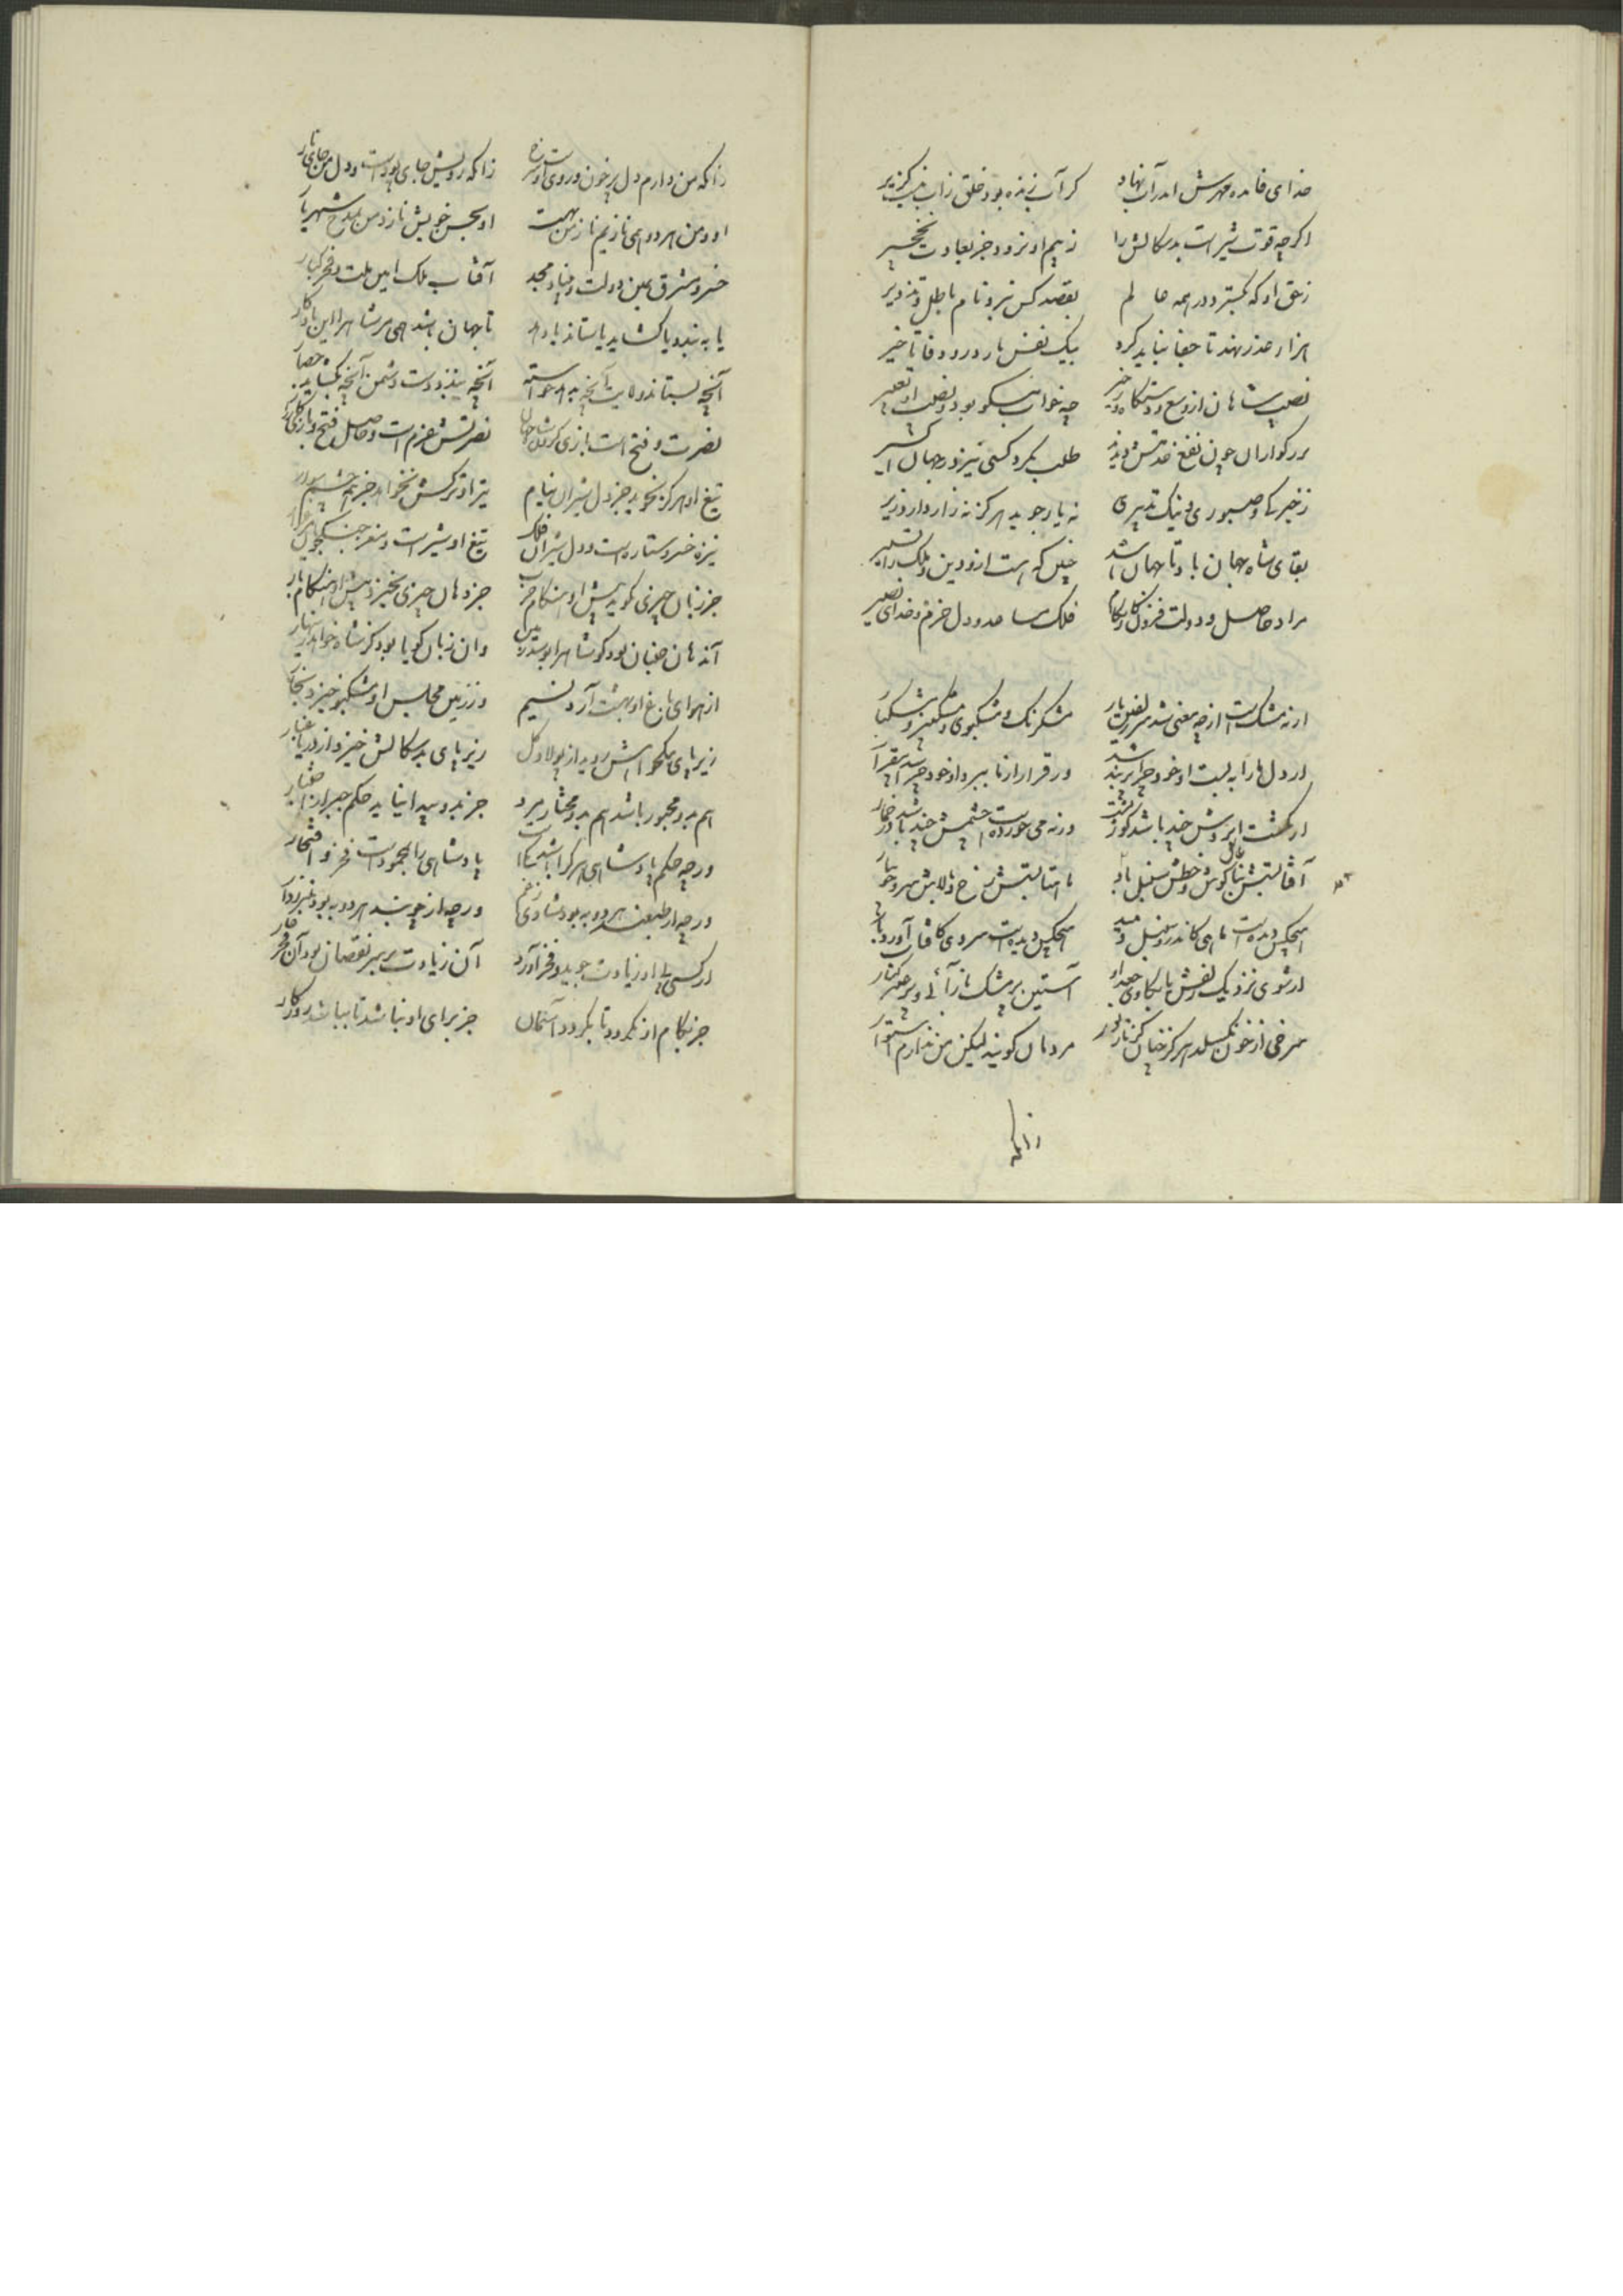 خدای فایده مهرش اندر آب نهاد کز آب زنده بود خلق زاب نیست گزیر
اگر چه قوت شیر است بدسکالش را ز بیم او نرود جز بعادت نخجیر
ز حق او که بگسترد در همه عالم بقصد کس نبرد نام باطل و تزویر
هزار عذر نهد تا جفا نباید کرد بیک نفس نارد در وفا تاخیر
نصیب شاهان از وسع و دستگاه
بزرگواران چون نفع خدمتش دیدند طلب نکرد کسی نیز در جهان اکسیر
ز خیر و صبوری و نیک تدبیری نه یار جوید هرگز نه زار دارد زیر
بقای شاه جهان باد تا جهان باشد چنین که هست ازو دین و ملک را
مراد حاصل و دولت فزون و کار بکام فلک مساعد و دل خرم و خدای نصیر
ار نه مشکست از چه معنی شد سر زلفین یار مشکرنگ و مشکبوی و مشکبیز و مشکبار
ار دل ما را به بست او خود چرا در بند شد ور قرار از ما ببرد او خود چرا شد بیقرار
ار نگشت ابروش چند باشد گوژپشت ور نه می خورده است چشمش چند باشد در خمار
آفتابستش بناگوش و خطش سنبل بود ماهتابستش رخ و بالاش سرو جویبار
هیچکس دیده است ماهی کاندرو سنبل دمید هیچکس دیده است سروی کافتاب آورد بار
ار شوی نزدیک زلفش یا بکاوی جعد او آستین پر مشک باز آئی و پر عنبر کنار
سرخی از خون نگسلد هرگز چنان کز نار نور مردمان گویند لیکن من ندارم استوار
زانکه
زانکه من دارم دل پر خون و روی او زانکه رویش جای نور است و دل من جای نار
او و من هر دو همی نازیم ناز من بهست او بحسن خویش نازد من بمدح شهریار
خسرو مشرق یمین دولت و بنیاد مجد آفتاب ملک امین ملت و فخر کبار
یا به بندد یا گشاید یا ستاند یا دهد تا جهان باشد همی مر شاه را این یادگار
آنچه بستاند ولایت آنچه بدهد خواسته آنچه بندد دست دشمن آنچه بگشاید حصار
نصرت و فتح است بازی کردن شاه جهان نصرتش عزم است و حاصل فتح و بازی کارزار
تیغ او هرگز نجوید جز دل شیران نیام تیر او ترکش نخواهد جز دو چشم سوار
نیزه خسرو ستاره است و دل شیران فلک تیغ او شیر است و مغز جنگجویان مرغزار
جز زبان چیزی نگوید پیش او هنگام حرب جز دهان چیزی نخیزد پیش او هنگام بار
آن دهان خندان بود کو شاه را بوسد زمین وان زبان گویا بود کز شاه خواهد زینهار
از هوای باغ او بهشت آرد نسیم وز زمین مجلس او مشکبو خیزد بخار
زیر پای نیکخواهش روید از پولاد گل زیر پای بدسکالش خیزد از دریا غبار
هم بدو مجبور باشد هم بدو مختار مرد جز بدو پیدا نیاید حکم جبر از اختیار
ور چه حکم پادشاهی هر کرا باشد یکیست پادشاهی را بمحمود است فخر و افتخار
ور چه از طبعند هر دو به بود شادی ز غم ور چه از چوبند هر دو به بود منبر ز دار
ار کسی با او زیادت جوید و فخر آورد آن زیادت سر بسر نقصان بود آن فخر عار
جز بکام او نگردد تا بگردد آسمان جز برای او نباشد تا بباشد روزگار